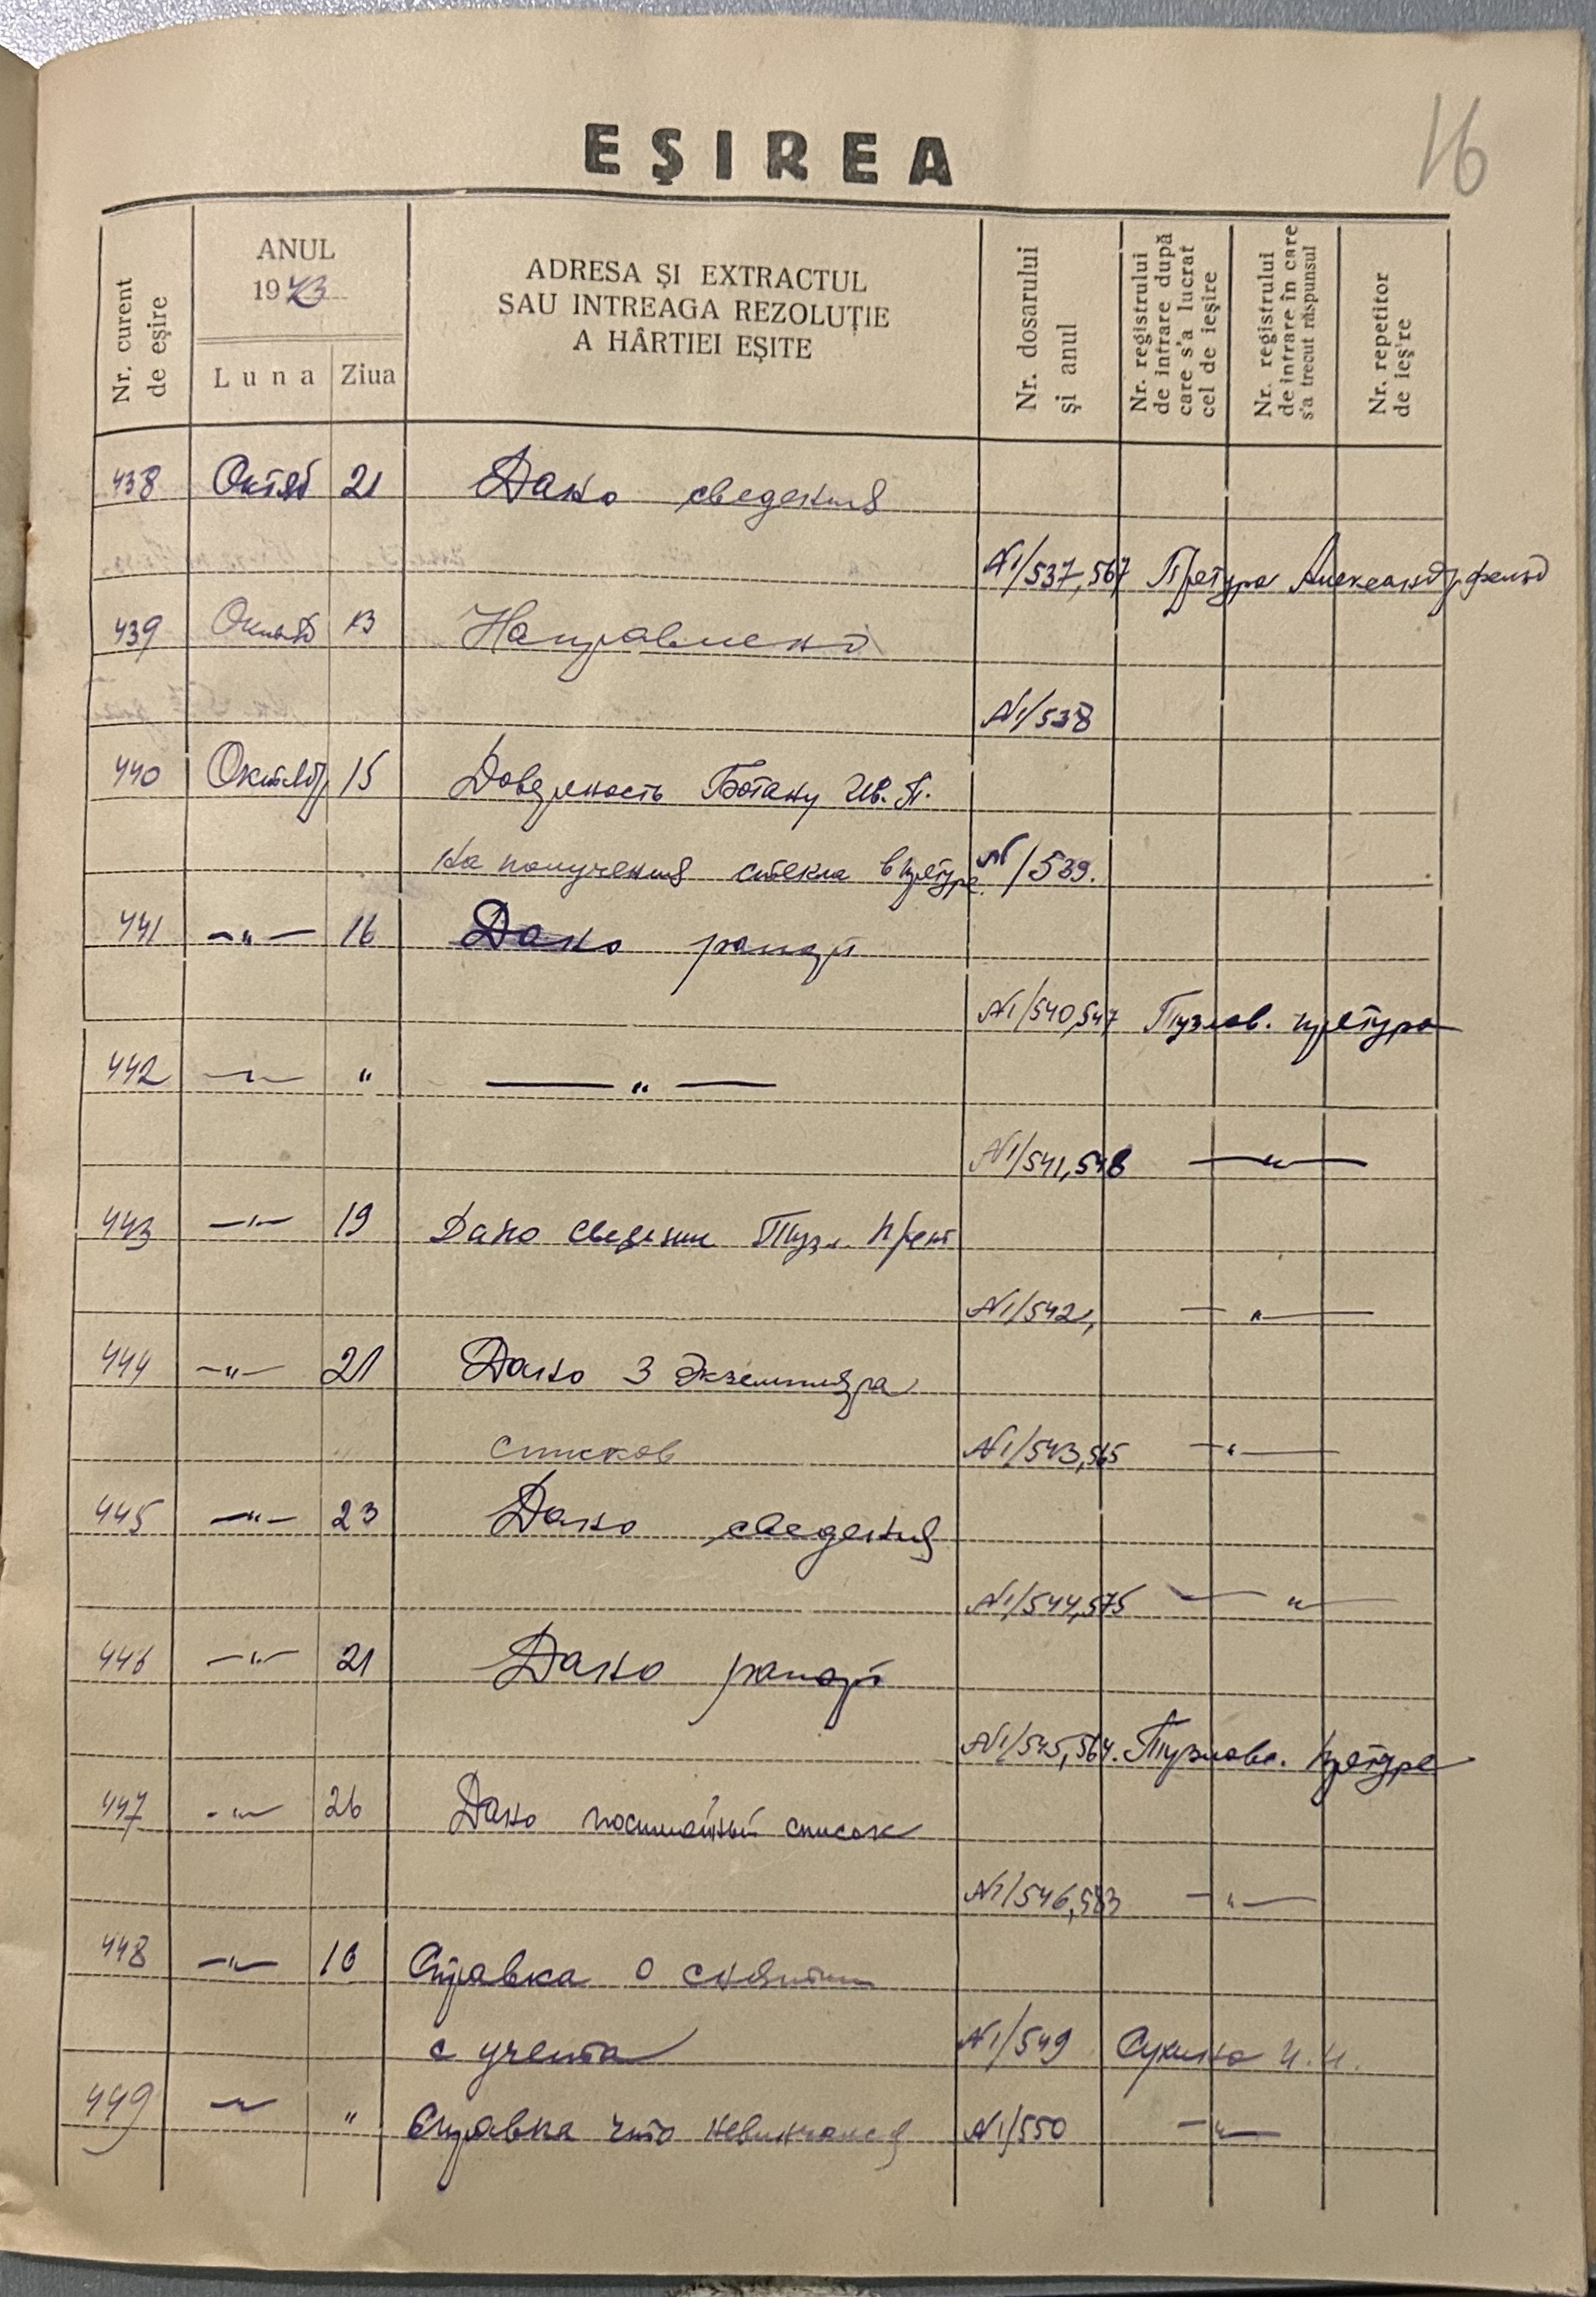 16
EȘIREA
Nr. curent de eșire
ANUL
1943
Luna
Ziua
ADRESA ȘI EXTRACTUL
SAU INTREAGA REZOLUȚIE
A HÂRTIEI EȘITE
Nr. dosarului și anul
Nr. registrului de intrare după care s'a lucrat cel de ieșire
Nr. registrului de intrare în care s'a trecut răspunsul
Nr. repetitor de ieș're
438 Октяб 21 Дано сведения
№1/537,567 Претура Александрфельд
439 13 Направлено
№1/538
440 Октябр 15 Доверность Ботану Ив. П.
на получения стекла в претуре. №/539.
441 —"— 16 Дано рапорт
№1/540,547 Тузлов. претура
442 —"— " —"—
№1/541,548 —"—
443 —"— 19 Дано сведении Тузл. Прет
№1/542, —"—
444 —"— 21 Дано 3 экземпляра
списков №1/543,565 —"—
445 —"— 23 Дано сведения
№1/544,575 —"—
446 —"— 21 Дано рапорт
№1/545,564. Тузлов. претуре
447 —"— 26 Дано список
№1/546,583 —"—
448 —"— 16 Справка о снятии
с учета №1/549 И.И.
449 —"— " Справка что невинчался №1/550 —"—